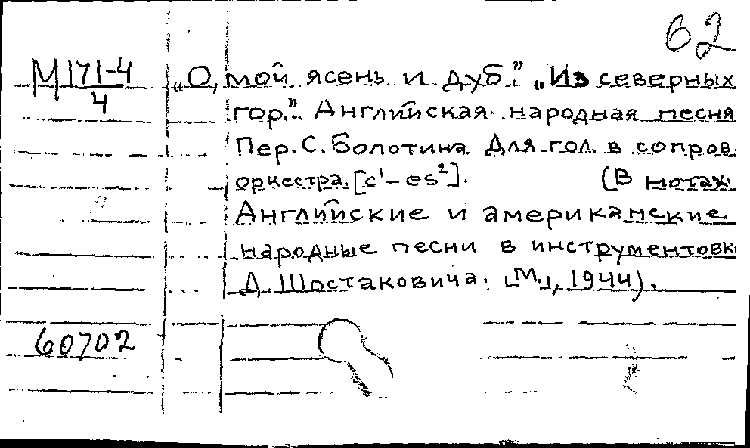 62
М 171-4
4
„О, мой ясень и дуб.” „Из северных
гор.”. Английская народная песня
Пер. С. Болотина. Для гол. в сопров.
оркестра. [c¹ – es²]. (В нотах:
Английские и американские
народные песни в инструментовк
Д. Шостаковича. [М.], 1944).
60702